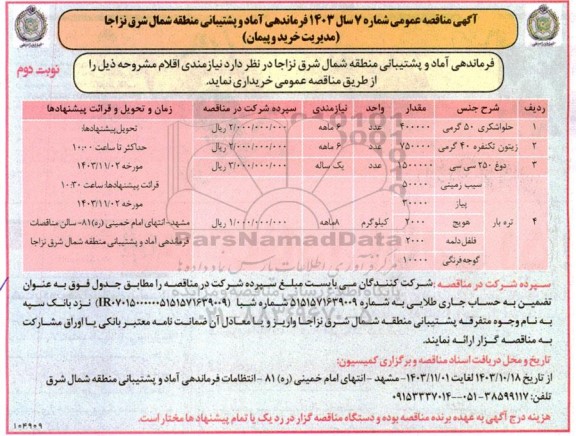 آگهی مناقصه عمومی شماره ۷ سال ۱۴۰۳ فرماندهی آماد و پشتیبانی منطقه شمال شرق نزاجا
(مدیریت خرید و پیمان)
نوبت دوم
فرماندهی آماد و پشتیبانی منطقه شمال شرق نزاجا در نظر دارد نیازمندی اقلام مشروحه ذیل را
از طریق مناقصه عمومی خریداری نماید.
ردیف شرح جنس مقدار واحد نیازمندی سپرده شرکت در مناقصه زمان و تحویل و قرائت پیشنهادها
۱ حلواشکری ۵۰ گرمی ۴۰۰۰۰۰ عدد ۶ ماهه ۲/۰۰۰/۰۰۰/۰۰۰ ریال تحویل پیشنهادها:
۲ زیتون تکنفره ۴۰ گرمی ۷۵۰۰۰۰ عدد ۶ ماهه ۲/۰۰۰/۰۰۰/۰۰۰ ریال حداکثر تا ساعت ۱۰:۰۰
۳ دوغ ۲۵۰ سی سی ۱۵۰۰۰۰ عدد یک ساله ۳/۰۰۰/۰۰۰/۰۰۰ ریال مورخه ۱۴۰۳/۱۱/۰۲
سیب زمینی ۵۰۰۰۰ قرائت پیشنهادها: ساعت ۱۰:۳۰
پیاز ۳۰۰۰۰ مورخه ۱۴۰۳/۱۱/۰۲
۴ تره بار هویج ۲۰۰۰ کیلوگرم ۸ماهه ۱/۰۰۰/۰۰۰/۰۰۰ ریال مشهد- انتهای امام خمینی (ره)۸۱- سالن مناقصات
فلفل دلمه ۲۰۰۰ فرماندهی آماد و پشتیبانی منطقه شمال شرق نزاجا
گوجه فرنگی ۱۰۰۰۰
ParsNamadData
سپرده شرکت در مناقصه: شرکت کنندگان می بایست مبلغ سپرده شرکت در مناقصه را مطابق جدول فوق به عنوان
تضمین به حساب جاری طلایی به شماره ۵۱۵۱۵۷۱۶۳۹۰۰۹ شماره شبا (IR۰۷۰۱۵۰۰۰۰۰۰۵۱۵۱۵۷۱۶۳۹۰۰۹) نزد بانک سپه
به نام وجوه متفرقه پشتیبانی منطقه شمال شرق نزاجا واریز و یا معادل آن ضمانت نامه معتبر بانکی یا اوراق مشارکت
به مناقصه گزار ارائه نمایند.
تاریخ و محل دریافت اسناد مناقصه و برگزاری کمیسیون:
از تاریخ ۱۴۰۳/۱۰/۱۸ لغایت ۱۴۰۳/۱۱/۰۱- مشهد - انتهای امام خمینی (ره) ۸۱ - انتظامات فرماندهی آماد و پشتیبانی منطقه شمال شرق
تلفن: ۳۸۵۹۹۱۱۷-۰۵۱ - ۰۹۱۵۳۳۳۷۰۱۴
هزینه درج آگهی به عهده برنده مناقصه بوده و دستگاه مناقصه گزار در رد یک یا تمام پیشنهادها مختار است.
۱۰۴۹۰۹